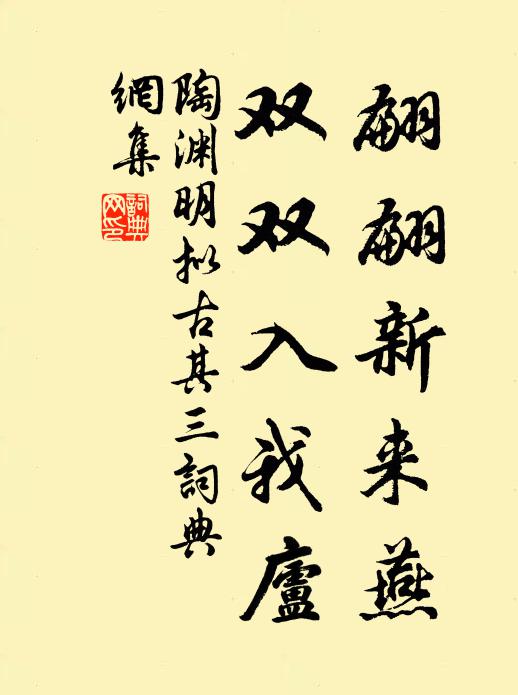 翩翩新来燕
双双入我廬
陶渊明拟古其三詞典
網集
詞典网印